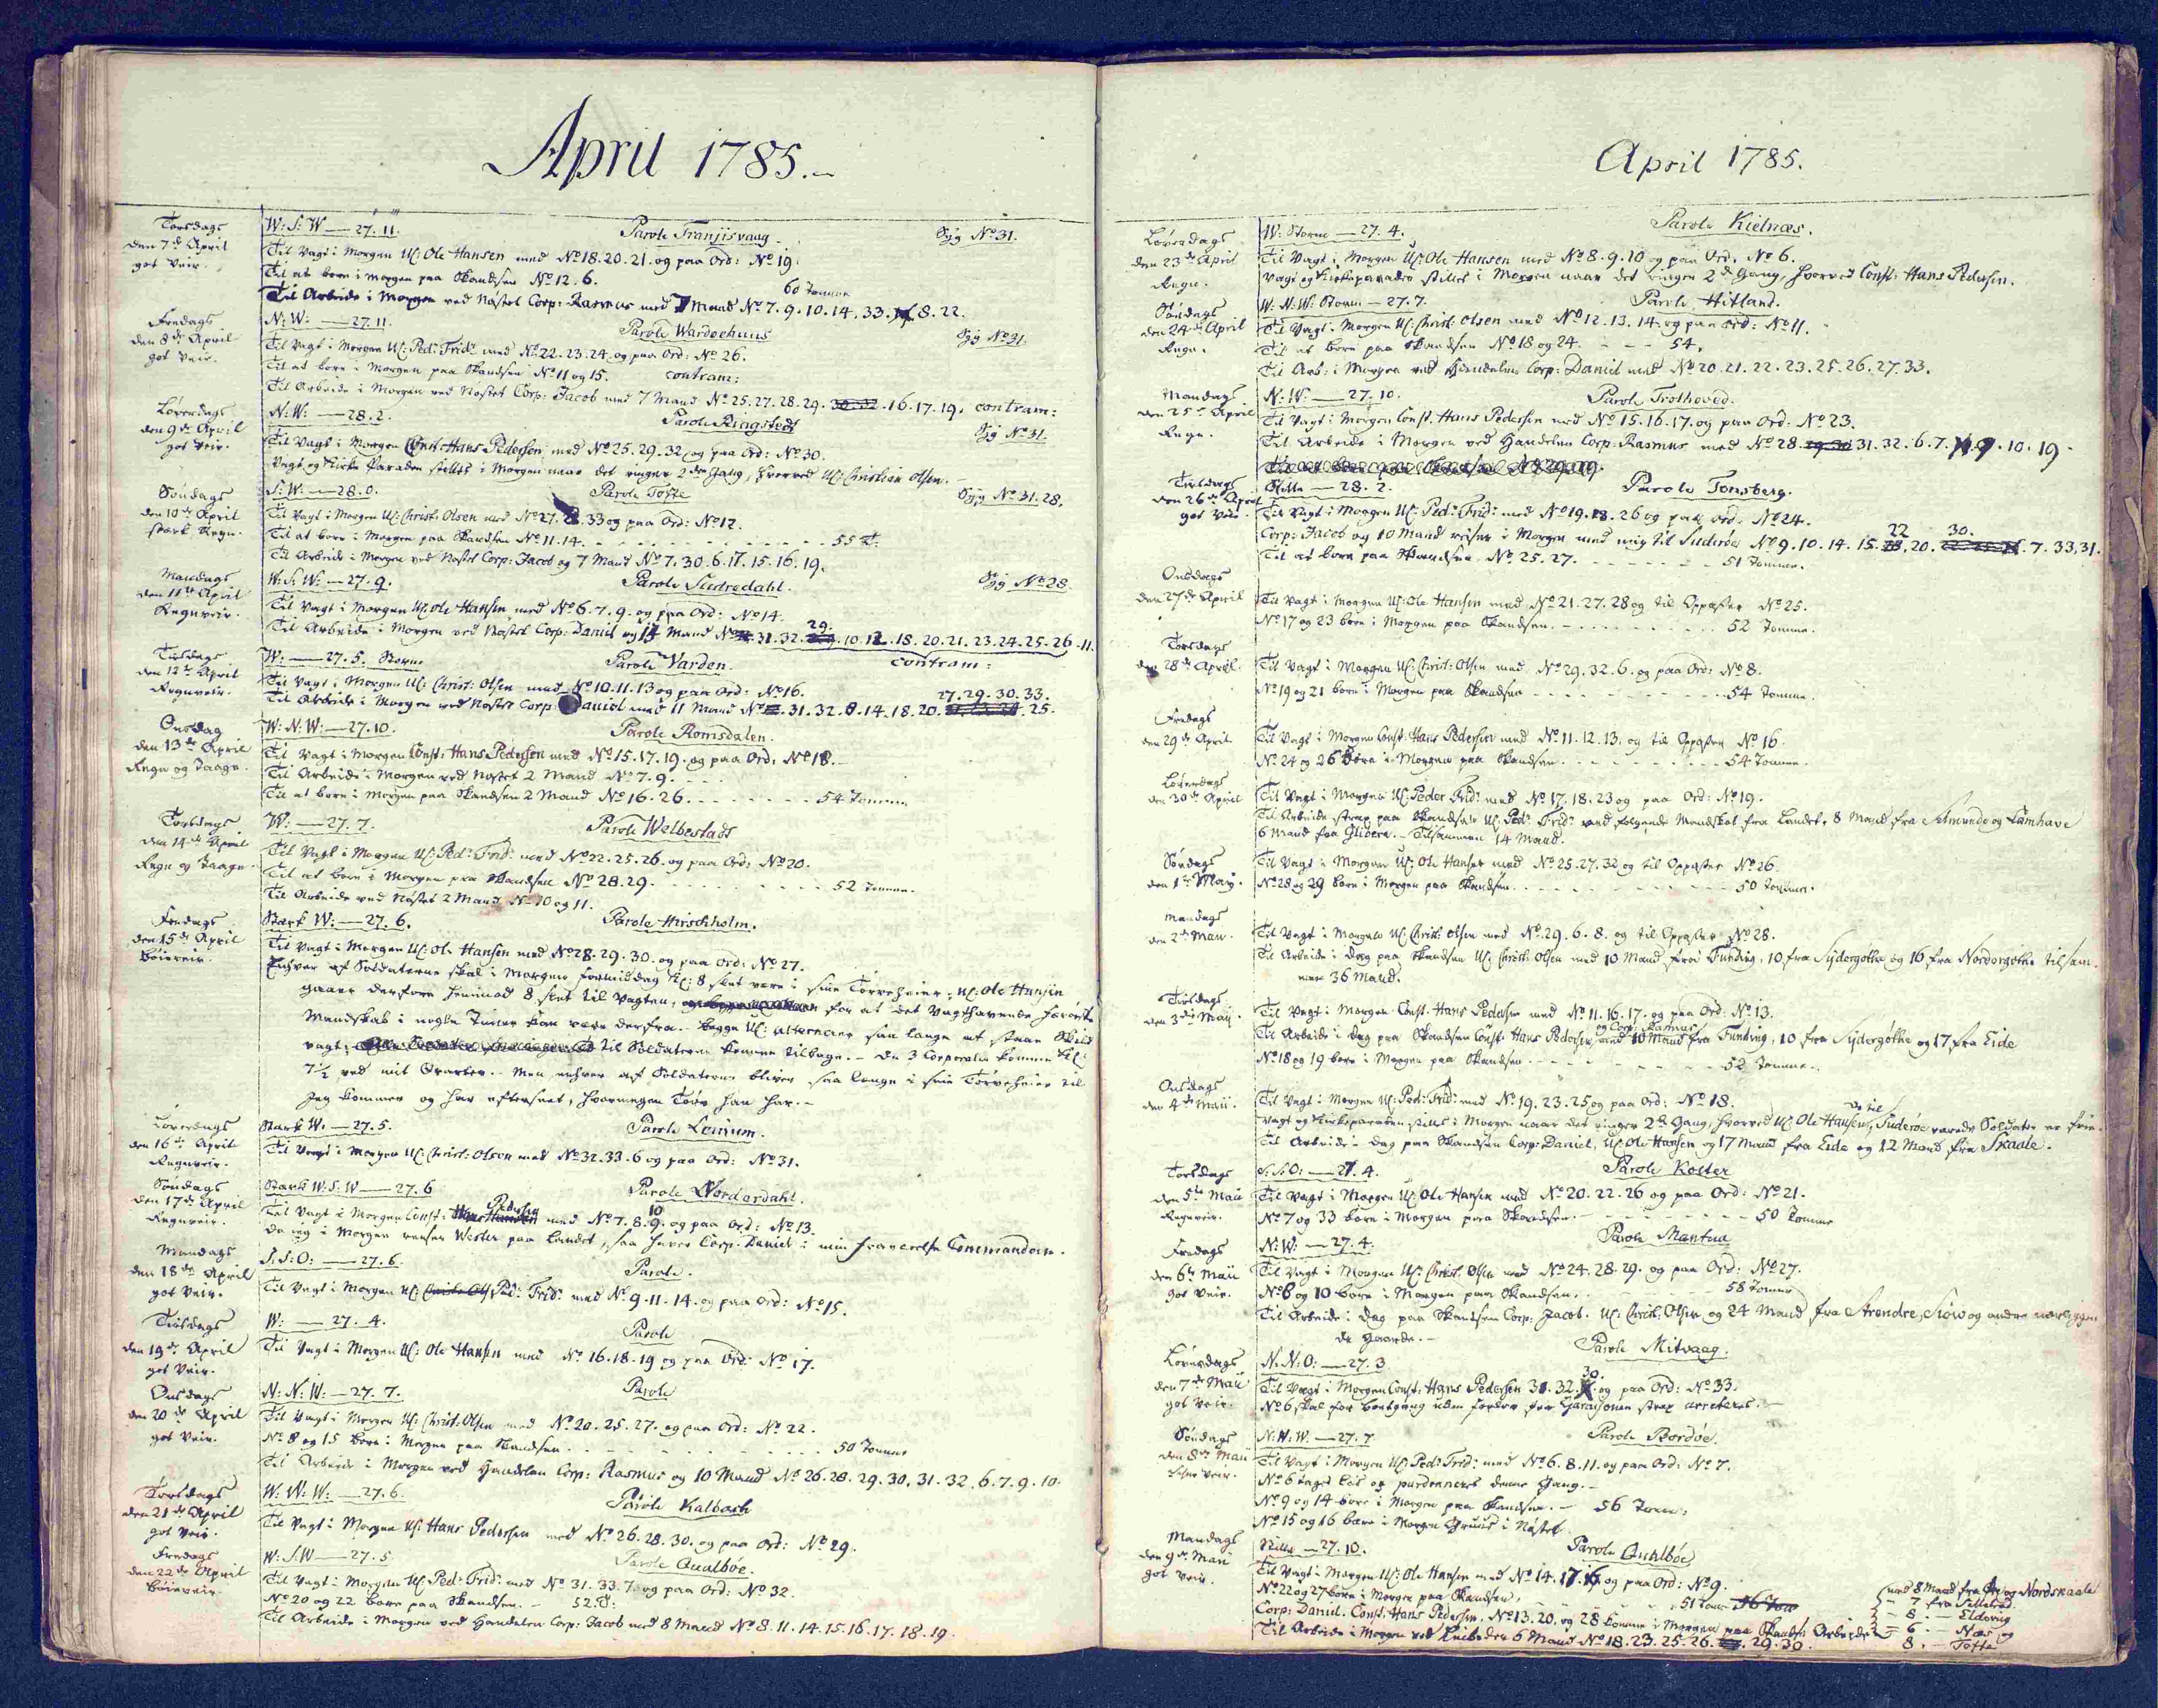 April 1785.
Torsdags
den 7de April
got Veir.
W: S: W — 27. 11.
Parole Franjisvaag.
Syg No 31.
Til Vagt i Morgen U: Ole Hansen med No 18. 20. 21. og paa Ord: No 19.
Til at bere i Morgen paa Skandsen No 12. 6.
60 Tommer
Til Arbeide i Morgen ved Nøstet Corp: Rasmus med 7 Mand No 7. 9. 10. 14. 33. 8. 22.
Fredags
den 8de April
got Veir.
N: W: — 27. 11.
Parole Wardoehuus
Syg No 31.
Til Vagt i Morgen U: Ped: Frid: med No 22. 23. 24. og paa Ord: No 26.
Til at bere i Morgen paa Skandsen No 11 og 15. contram:
Til Arbeide i Morgen ved Nøstet Corp: Jacob med 7 Mand No 25. 27. 28. 29. 30. 32. 16. 17. 19. contram:
Løverdags
den 9de April
got Veir.
N: W: — 28. 2.
Parole Ringsted
Syg No 31.
Til Vagt i Morgen Const: Hans Pedersen med No 25. 29. 32. og paa Ord: No 30.
Vagt og Kirke Paraden stilles i Morgen naar det ringer 2den Gang, hvorved U: Christian Olsen.
Søndags
den 10de April
stærk Regn.
S: W: — 28. 0.
Parole Tofte
Syg No 31. 28.
Til Vagt i Morgen U: Christ: Olsen med No 27. 33 og paa Ord: No 12.
Til at bere i Morgen paa Skandsen No 11. 14. - - - 55 T.
Til Arbeide i Morgen ved Nøstet Corp: Jacob og 7 Mand No 7. 30. 6. 17. 15. 16. 19.
Mandags
den 11te April
Regnveir.
W: S: W: — 27. 9.
Parole Sudredahl.
Syg No 28.
Til Vagt i Morgen U: Ole Hansen med No 6. 7. 9. og paa Ord: No 14.
29.
Til Arbeide i Morgen ved Nøstet Corp: Daniel og 14 Mand No 31. 32. 10. 12. 18. 20. 21. 23. 24. 25. 26. 11.
Tirsdags
den 12te April
Regnveir.
W: — 27. 5. Storm
Parole Varden.
contram:
Til Vagt i Morgen U: Christ: Olsen med No 10. 11. 13 og paa Ord: No 16.
27. 29. 30. 33.
Til Arbeide i Morgen ved Nøstet Corp: Daniel med 11 Mand No 31. 32. 8. 14. 18. 20. 25.
Onsdag
den 13de April
Regn og Taage.
W: N: W: — 27. 10.
Parole Romsdalen.
Til Vagt i Morgen Const: Hans Pedersen med No 15. 17. 19. og paa Ord: No 18.
Til Arbeide i Morgen ved Nøstet 2 Mand No 7. 9.
Til at bere i Morgen paa Skandsen 2 Mand No 16. 26. - - - 54 Tommer
Torsdags
den 14de April
Regn og Taage.
W: — 27. 7.
Parole Welbestad
Til Vagt i Morgen U: Ped: Frid: med No 22. 25. 26. og paa Ord: No 20.
Til at bere i Morgen paa Skandsen No 28. 29. - - - 52 Tommer.
Til Arbeide ved Nøstet 2 Mand No 10 og 11.
Fredags
den 15de April
Bøieveir.
Stærk W: — 27. 6.
Parole Hirschholm.
Til Vagt i Morgen U: Ole Hansen med No 28. 29. 30. og paa Ord: No 27.
Enhver af Soldaterne skal i Morgen Formiddag Kl: 8 slet være i sine Tørveheier; U: Ole Hansen
gaaer derfore henimod 8 slet til Vagten, for at det Vagthavende
Mandskab i nogle Timer kan være derfra. Begge U: alternerer saa længe at staae Skild
vagt, til Soldaterne komme tilbage. - De 3 Corporaler komme Kl:
7½ ved mit Qvarteer. Men enhver af Soldaterne bliver saa længe i sine Tørveheier til
Jeg kommer og har efterseet, hvormegen Tørv han har. -
Løverdags
den 16de April
Regnveir.
Stærk W: — 27. 5.
Parole
Til Vagt i Morgen U: Christ: Olsen med No 32. 33. 6 og paa Ord: No 31.
Søndags
den 17de April
Regnveir.
Stærk W: S: W — 27. 6
Parole Norderdahl.
Pedersen
10
Til Vagt i Morgen Const: Hans Hansen med No 7. 8. 9. og paa Ord: No 13.
Da jeg i Morgen reiser Wester paa Landet, saa haver Corp. Daniel i min fraværelse Commandoen.
Mandags
den 18de April
got Veir.
S: S: O: — 27. 6.
Parole.
Til Vagt i Morgen U: Christ: Ols Ped: Frid: med No 9. 11. 14. og paa Ord: No 15.
Tirsdags
den 19de April
got Veir.
W: — 27. 4.
Parole
Til Vagt i Morgen U: Ole Hansen med No 16. 18. 19 og paa Ord: No 17.
Onsdags
den 20de April
got Veir.
N: N: W: — 27. 7.
Parole
Til Vagt i Morgen U: Christ: Olsen med No 20. 25. 27. og paa Ord: No 22.
No 8 og 15 bere i Morgen paa Skandsen. - - - 50 Tommer
Til Arbeide i Morgen ved Handelen Corp: Rasmus og 10 Mand No 26. 28. 29. 30. 31. 32. 6. 7. 9. 10.
Torsdags
den 21de April
got Veir.
W: N: W: — 27. 6.
Parole Kalbach
Til Vagt i Morgen U: Hans Pedersen med No 26. 28. 30. og paa Ord: No 29.
Fredags
den 22de April
Bøieveir.
W: S: W — 27. 5
Parole Qualbøe.
Til Vagt i Morgen U: Ped: Frid: med No 31. 33. 7. og paa Ord: No 32.
No 20 og 22 bere paa Skandsen. - 52. T:
Til Arbeide i Morgen ved Handelen Corp: Jacob med 8 Mand No 8. 11. 14. 15. 16. 17. 18. 19.
April 1785.
Løverdags
den 23de April
Regn.
W: Storm — 27. 4.
Parole Kielnæs.
Til Vagt i Morgen U: Ole Hansen med No 8. 9. 10 og paa Ord: No 6.
Vagt og Kirkeparaden stilles i Morgen naar det ringer 2de Gang, hvorved Const: Hans Pedersen.
Søndags
den 24de April
Regn.
W: N: W: Storm — 27. 7.
Parole Hitland.
Til Vagt i Morgen U: Christ: Olsen med No 12. 13. 14. og paa Ord: No 11.
Til at bere paa Skandsen No 18 og 24. - - - 54.
Til Arb: i Morgen ved Handelen Corp: Daniel med No 20. 21. 22. 23. 25. 26. 27. 33.
Mandags
den 25de April
Regn.
N: W: — 27. 10.
Parole Trothoved.
Til Vagt i Morgen Const: Hans Pedersen med No 15. 16. 17. og paa Ord: No 23.
Til Arbeide i Morgen ved Handelen Corp: Rasmus med No 28. 29. 30 31. 32. 6. 7. 9. 10. 19.
Tirsdags
den 26de April
got Veir.
Stille — 28. 2.
Parole Tonsberg.
Til Vagt i Morgen U: Ped: Frid: med No 19. 18. 26 og paa Ord: No 24.
22 30.
Corp: Jacob og 10 Mand reiser i Morgen med mig til Suderøe No 9. 10. 14. 15. 20. 7. 33. 31.
Til at bere paa Skandsen No 25. 27. - - - 51 Tommer.
Onsdags
den 27de April
Til Vagt i Morgen U: Ole Hansen med No 21. 27. 28 og til Oppasser No 25.
No 17 og 23 bere i Morgen paa Skandsen. - - - 52 Tommer.
Torsdags
den 28de April
Til Vagt i Morgen U: Christ: Olsen med No 29. 32. 6. og paa Ord: No 8.
No 19 og 21 bere i Morgen paa Skandsen - - - 54 Tommer.
Fredags
den 29de April
Til Vagt i Morgen Const: Hans Pedersen med No 11. 12. 13. og til Oppasser No 16
No 24 og 26 bere i Morgen paa Skandsen. - - - 54 Tommer.
Løverdags
den 30te April
Til Vagt i Morgen U: Peder Frid: med No 17. 18. 23 og paa Ord: No 19.
Til Arbeide strax paa Skandsen U: Ped: Frid: ved følgende Mandskab fra Landet, 8 Mand fra og Lamhave
6 Mand fra Glibere. - Tilsammen 14 Mand.
Søndags
den 1te May.
Til Vagt i Morgen U: Ole Hansen med No 25. 27. 32 og til Oppasser No 26.
No 28 og 29 bere i Morgen paa Skandsen. - - - 50 Tommer.
Mandags
den 2den Maii.
Til Vagt i Morgen U: Christ: Olsen med No 29. 6. 8. og til Oppasser No 28.
Til Arbeide i Dag paa Skandsen U: Christ: Olsen med 10 Mand fra Funding, 10 fra Sydergøthe og 16 fra Nordergøthe tilsam-
men 36 Mand.
Tirsdags
den 3die Maii.
Til Vagt i Morgen Const: Hans Pedersen med No 11. 16. 17. og paa Ord: No 13.
og Corp: Rasmus
Til Arbeide i Dag paa Skandsen Const: Hans Pedersen med 10 Mand fra Funding, 10 fra Sydergøthe og 17 fra Eide
No 18 og 19 bere i Morgen paa Skandsen. - - - 52 Tommer.
Onsdags
den 4de Maii.
Til Vagt i Morgen U: Ped: Frid: med No 19. 23. 25 og paa Ord: No 18.
De til
Vagt og Kirkeparaden stilles i Morgen naar det ringer 2de Gang, hvorved U: Ole Hansen, Suderøe værende Soldater er frie.
Til Arbeide i Dag paa Skandsen Corp: Daniel, U: Ole Hansen og 17 Mand fra Eide og 12 Mand fra Skaale.
Torsdags
den 5te Maii
Regnveir.
S: S: O: — 27. 4.
Parole Kolter
Til Vagt i Morgen U: Ole Hansen med No 20. 22. 26 og paa Ord: No 21.
No 7 og 33 bere i Morgen paa Skandsen. - - - 50 Tommer
Fredags
den 6te Maii
got Veir.
N: W: — 27. 4.
Parole Mantua
Til Vagt i Morgen U: Christ: Olsen med No 24. 28. 29. og paa Ord: No 27.
No 8 og 10 bere i Morgen paa Skandsen. 58 Tommer
Til Arbeide i Dag paa Skandsen Corp: Jacob. U: Christ: Olsen og 24 Mand fra Arendre, Siow og andre nærliggen
de Gaarde. -
Løverdags
den 7de Maii
got Veir.
N: N: O: — 27. 3
Parole Mitvaag.
30.
Til Vagt i Morgen Const: Hans Pedersen 31. 32. og paa Ord: No 33.
No 6 skal for bortgang uden forlov fra Garnisonen strax arreteres. -
Søndags
den 8de Maii
Veir.
N: W: W: — 27. 7
Parole Bordøe.
Til Vagt i Morgen U: Ped: Frid: med No 6. 8. 11. og paa Ord: No 7.
No 6 tages løs og pardonneres denne Gang. -
No 9 og 14 bere i Morgen paa Skandsen. - 56 Tom:
No 15 og 16 bære i Morgen Gruus i Nøstet
Mandags
den 9de Maii
got Veir.
Stille — 27. 10.
Parole Qualbøe
Til Vagt i Morgen U: Ole Hansen med No 14. 17. og paa Ord: No 9.
No 22 og 27 bere i Morgen paa Skandsen. - - 51 Tom
Corp: Daniel. Const: Hans Pedersen, No 13. 20. og 28 komme i Morgen paa Skandsen Arbeide
Til Arbeide i Morgen ved 6 Mand No 18. 23. 25. 26. 29. 30.
med 8 Mand fra og Nordskaale
- 7 fra
- 8. - Eldevig
- 6. - Næs og
8. - Tofte